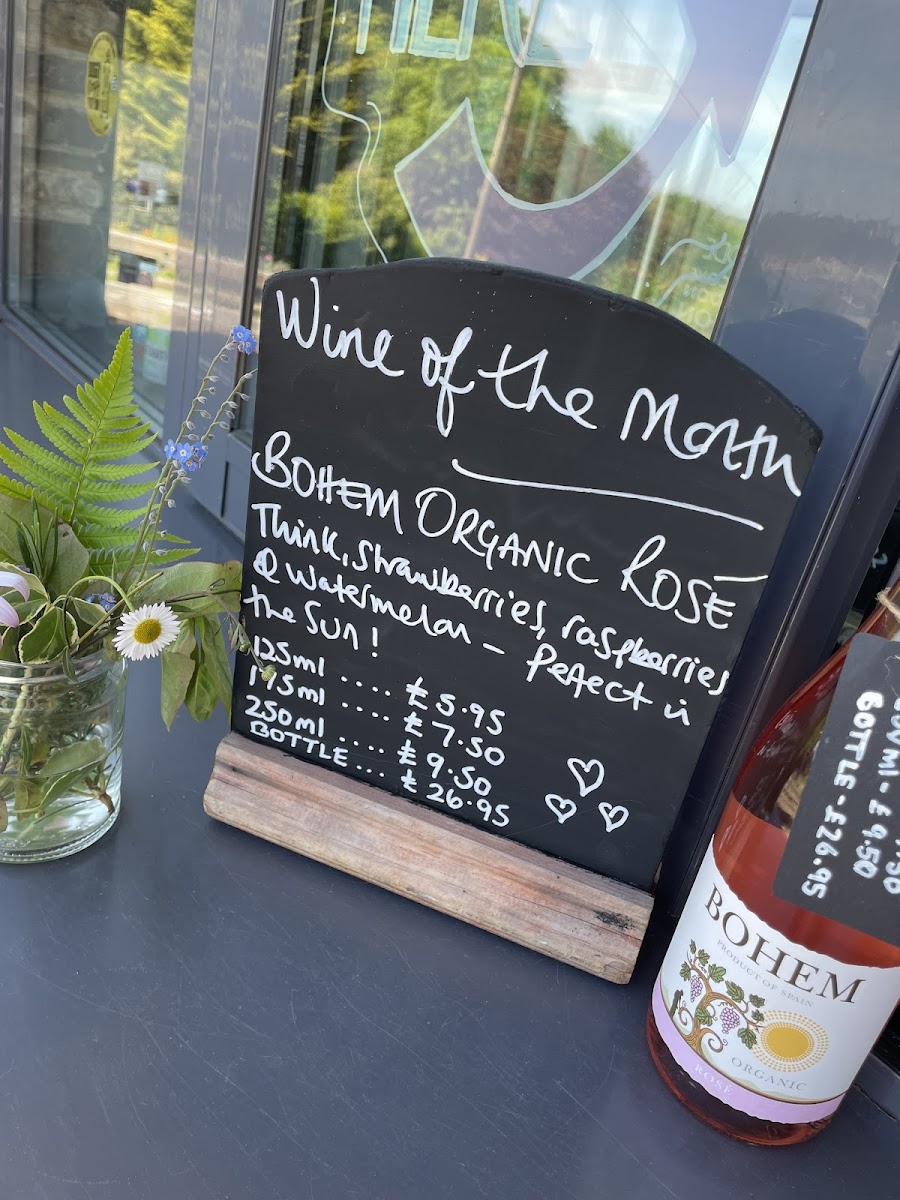 HERE
Wine of the Month
BOHEM ORGANIC ROSÉ
Think, strawberries, raspberries
& watermelon - Perfect in
the sun!
125ml .... £5.95
175ml .... £7.50
250ml .... £9.50
BOTTLE... £26.95
.50
ML - £9.50
BOTTLE - £26.95
BOHEM
PRODUCT OF SPAIN
ORGANIC
ROSÉ